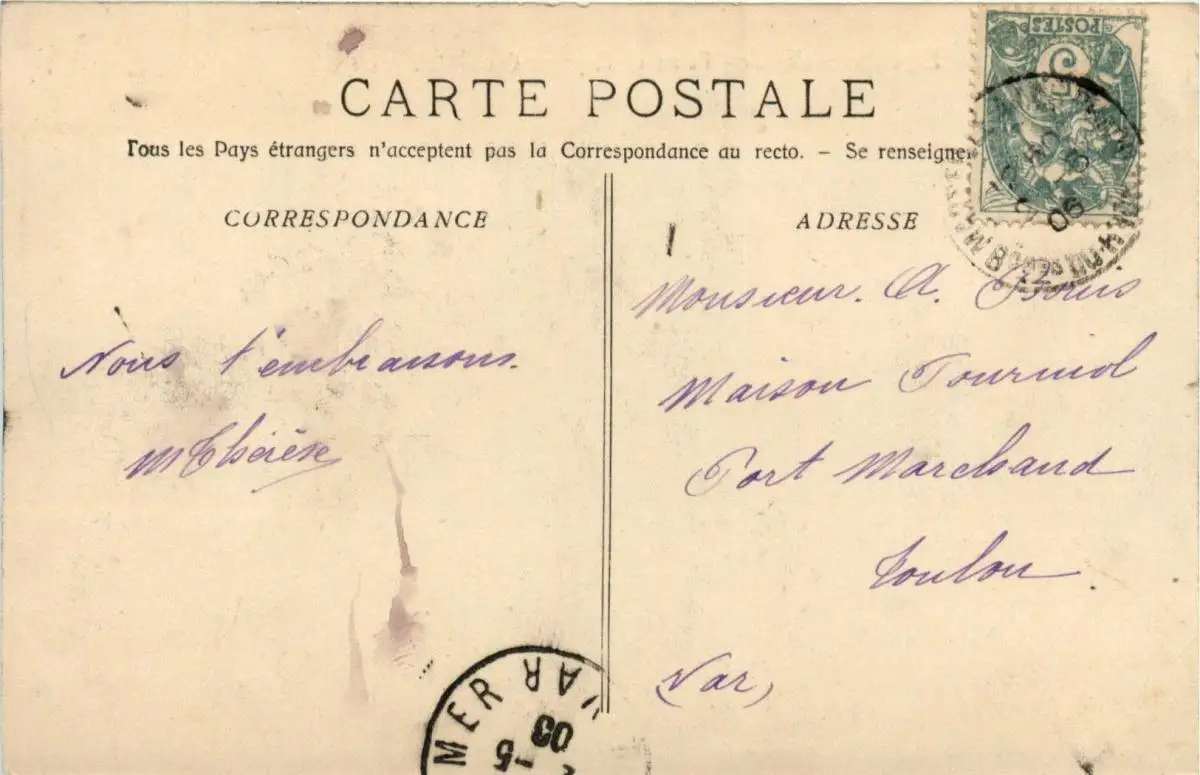 CARTE POSTALE
Tous les Pays étrangers n'acceptent pas la Correspondance au recto. - Se renseigner
CORRESPONDANCE
ADRESSE
POSTES
5
06
Nous t'embrassons.
MThérèse
Monsieur. A.
Maison Tourniol
Port Marchand
Toulon.
(Var)
MER VAR
-5